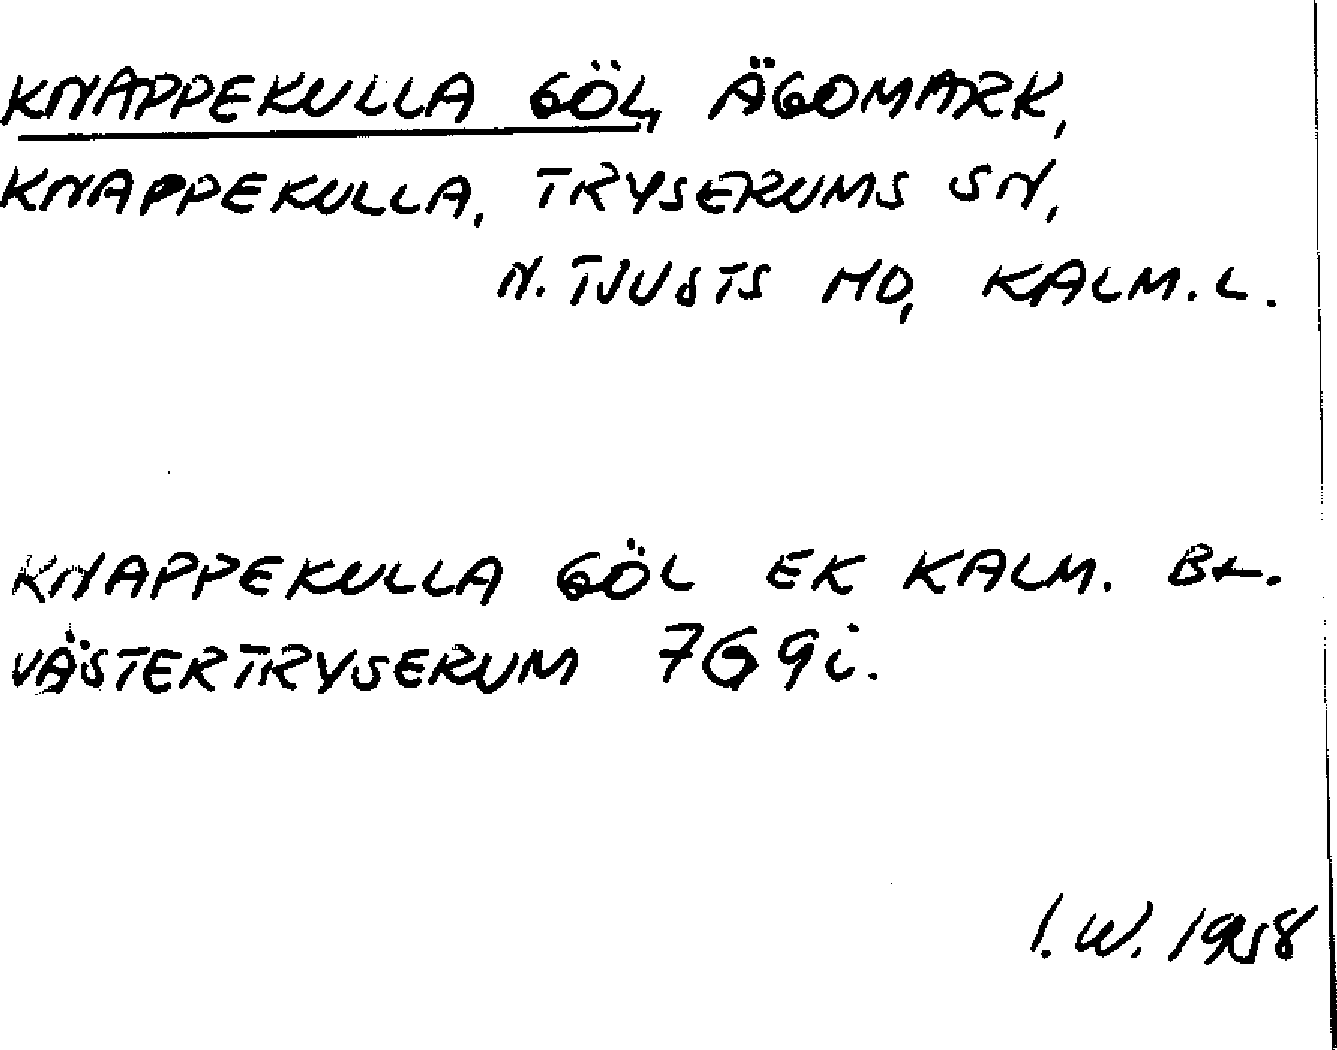 KNAPPEKULLA GÖL, ÄGOMARK,
KNAPPEKULLA, TRYSERUMS SN,
N. TJUSTS HD, KALM. L.
KNAPPEKULLA GÖL EK KALM. BL.
VÄSTERTRYSERUM 7G 9i.
I. W. 1958